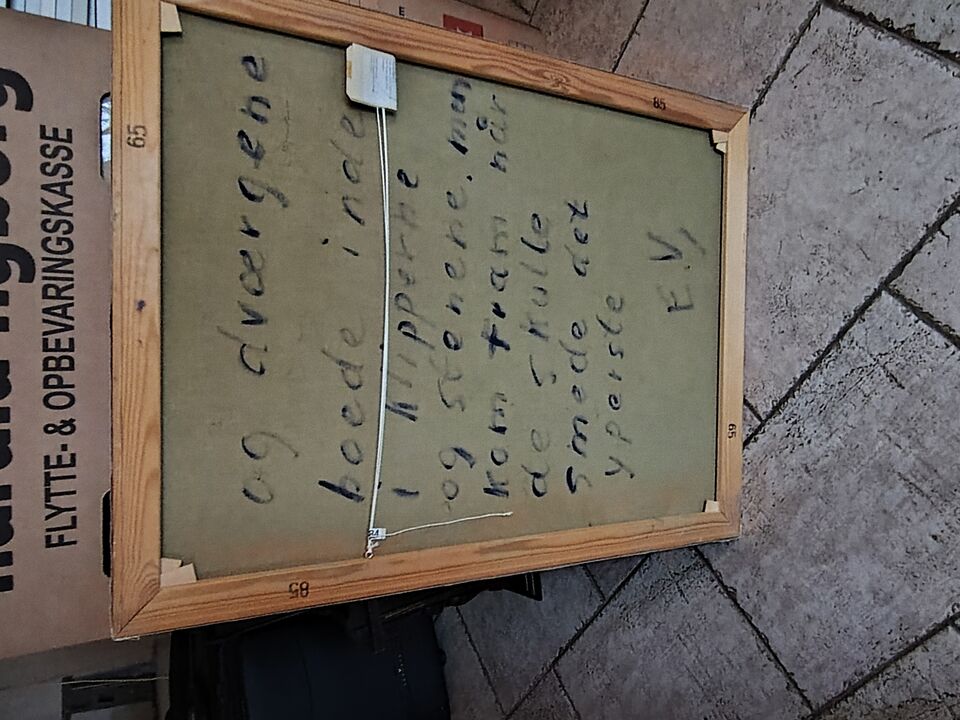 og dværgene
boede inde
i klipperne
og stenene. men
kom fram når
de skulle
smede det
yperste
E.V,
65
85
65
85
FLYTTE- & OPBEVARINGSKASSE